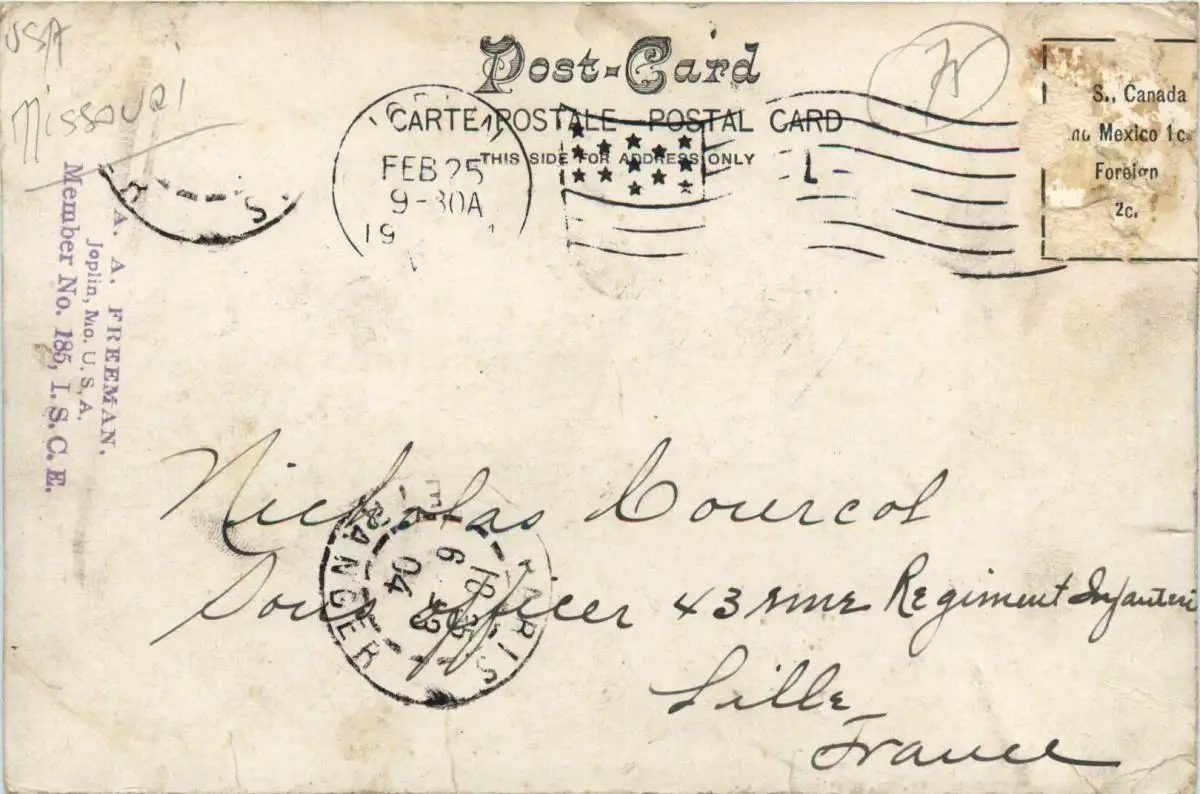 USA
Missouri
Post-Card
CARTE POSTALE POSTAL CARD
THIS SIDE FOR ADDRESS ONLY
FEB 25
9-30A
19
S., Canada
Mexico 1c.
Foreign
2c.
A. A. FREEMAN.
Joplin, Mo. U. S. A.
Member No. 185, I. S. C. E.
Nicholas Courcol
Sous officer 43 eme Regiment Infanteri
Lille
France
PARIS
ETRANGER
04